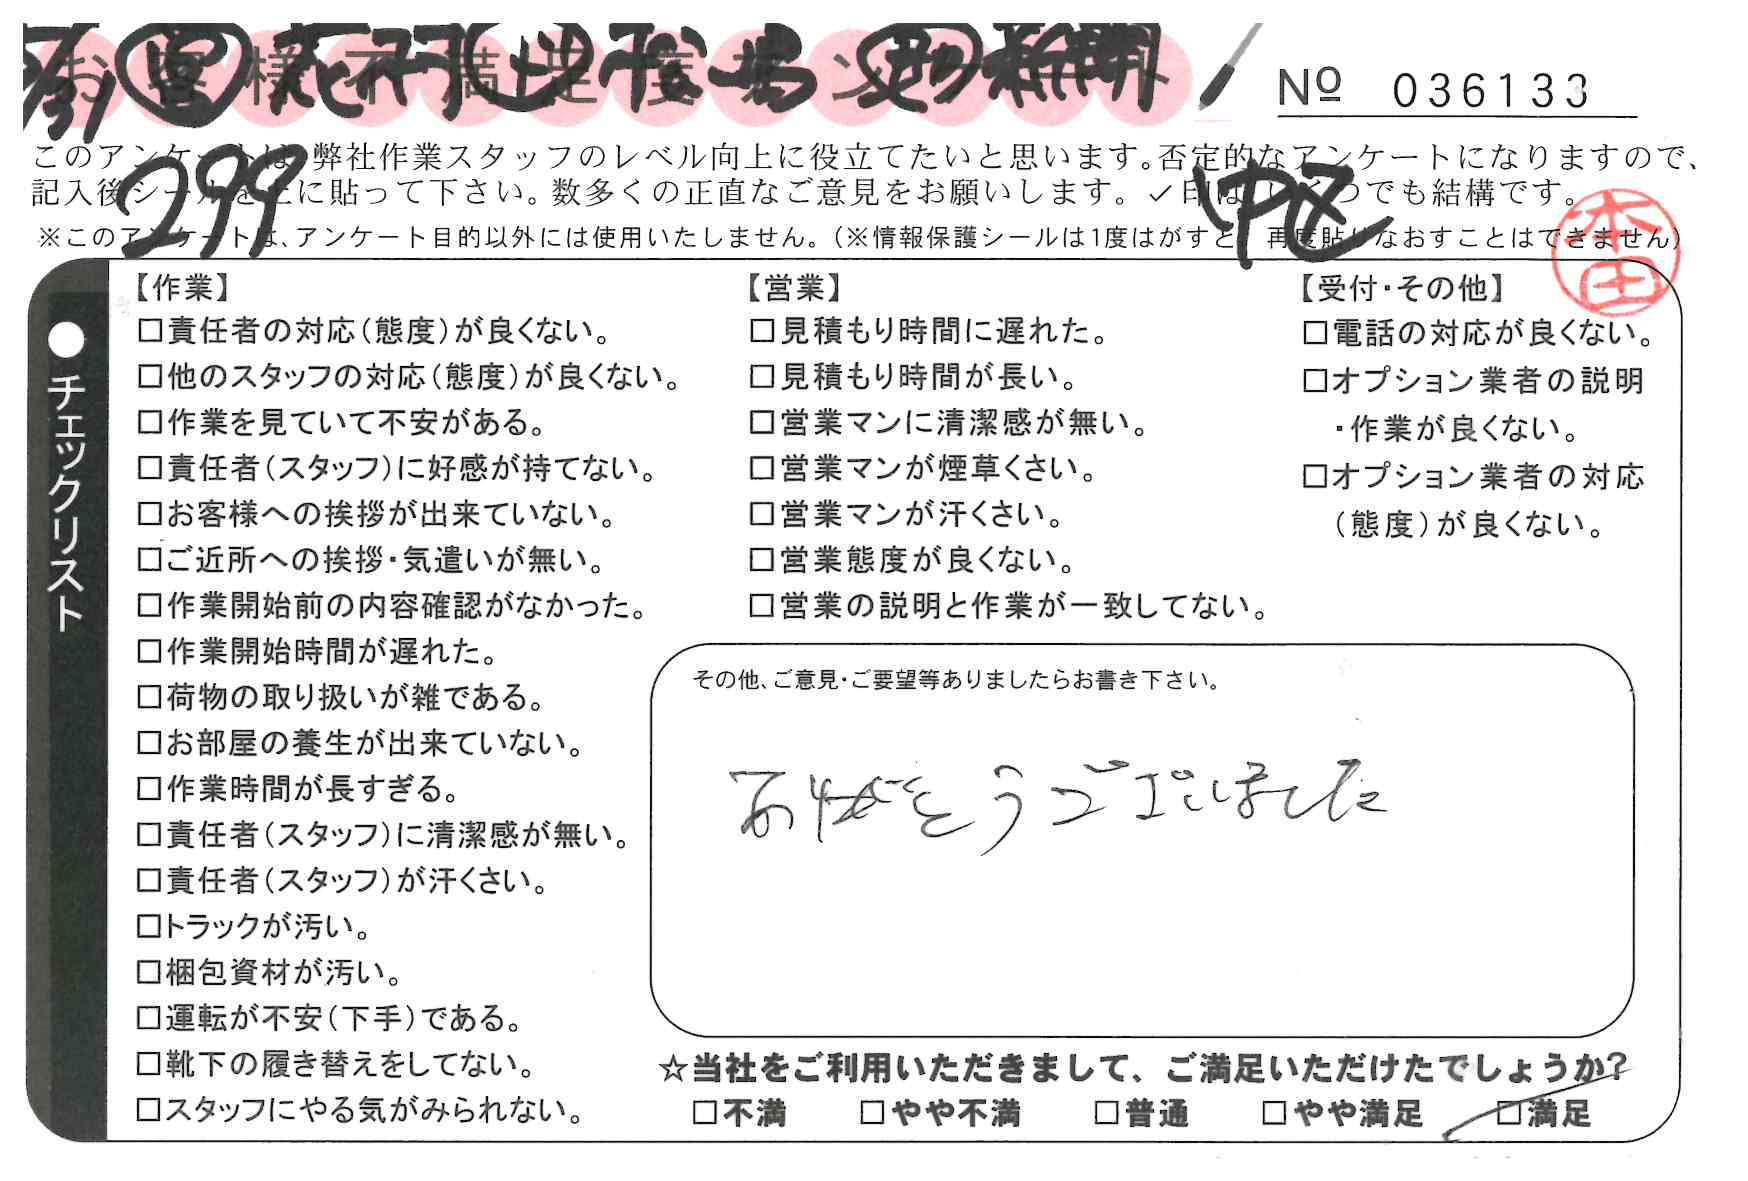 お客様不満足度アンケート
№ 036133
このアンケートは、弊社作業スタッフのレベル向上に役立てたいと思います。否定的なアンケートになりますので、
記入後シールを上に貼って下さい。数多くの正直なご意見をお願いします。✓印はいくつでも結構です。
299
中区
※このアンケートは、アンケート目的以外には使用いたしません。(※情報保護シールは1度はがすと、再度貼りなおすことはできません)
本田
●チェックリスト
【作業】
□責任者の対応(態度)が良くない。
□他のスタッフの対応(態度)が良くない。
□作業を見ていて不安がある。
□責任者(スタッフ)に好感が持てない。
□お客様への挨拶が出来ていない。
□ご近所への挨拶・気遣いが無い。
□作業開始前の内容確認がなかった。
□作業開始時間が遅れた。
□荷物の取り扱いが雑である。
□お部屋の養生が出来ていない。
□作業時間が長すぎる。
□責任者(スタッフ)に清潔感が無い。
□責任者(スタッフ)が汗くさい。
□トラックが汚い。
□梱包資材が汚い。
□運転が不安(下手)である。
□靴下の履き替えをしてない。
□スタッフにやる気がみられない。
【営業】
□見積もり時間に遅れた。
□見積もり時間が長い。
□営業マンに清潔感が無い。
□営業マンが煙草くさい。
□営業マンが汗くさい。
□営業態度が良くない。
□営業の説明と作業が一致してない。
【受付・その他】
□電話の対応が良くない。
□オプション業者の説明
・作業が良くない。
□オプション業者の対応
(態度)が良くない。
その他、ご意見・ご要望等ありましたらお書き下さい。
ありがとうございました
☆当社をご利用いただきまして、ご満足いただけたでしょうか?
□不満 □やや不満 □普通 □やや満足 □満足